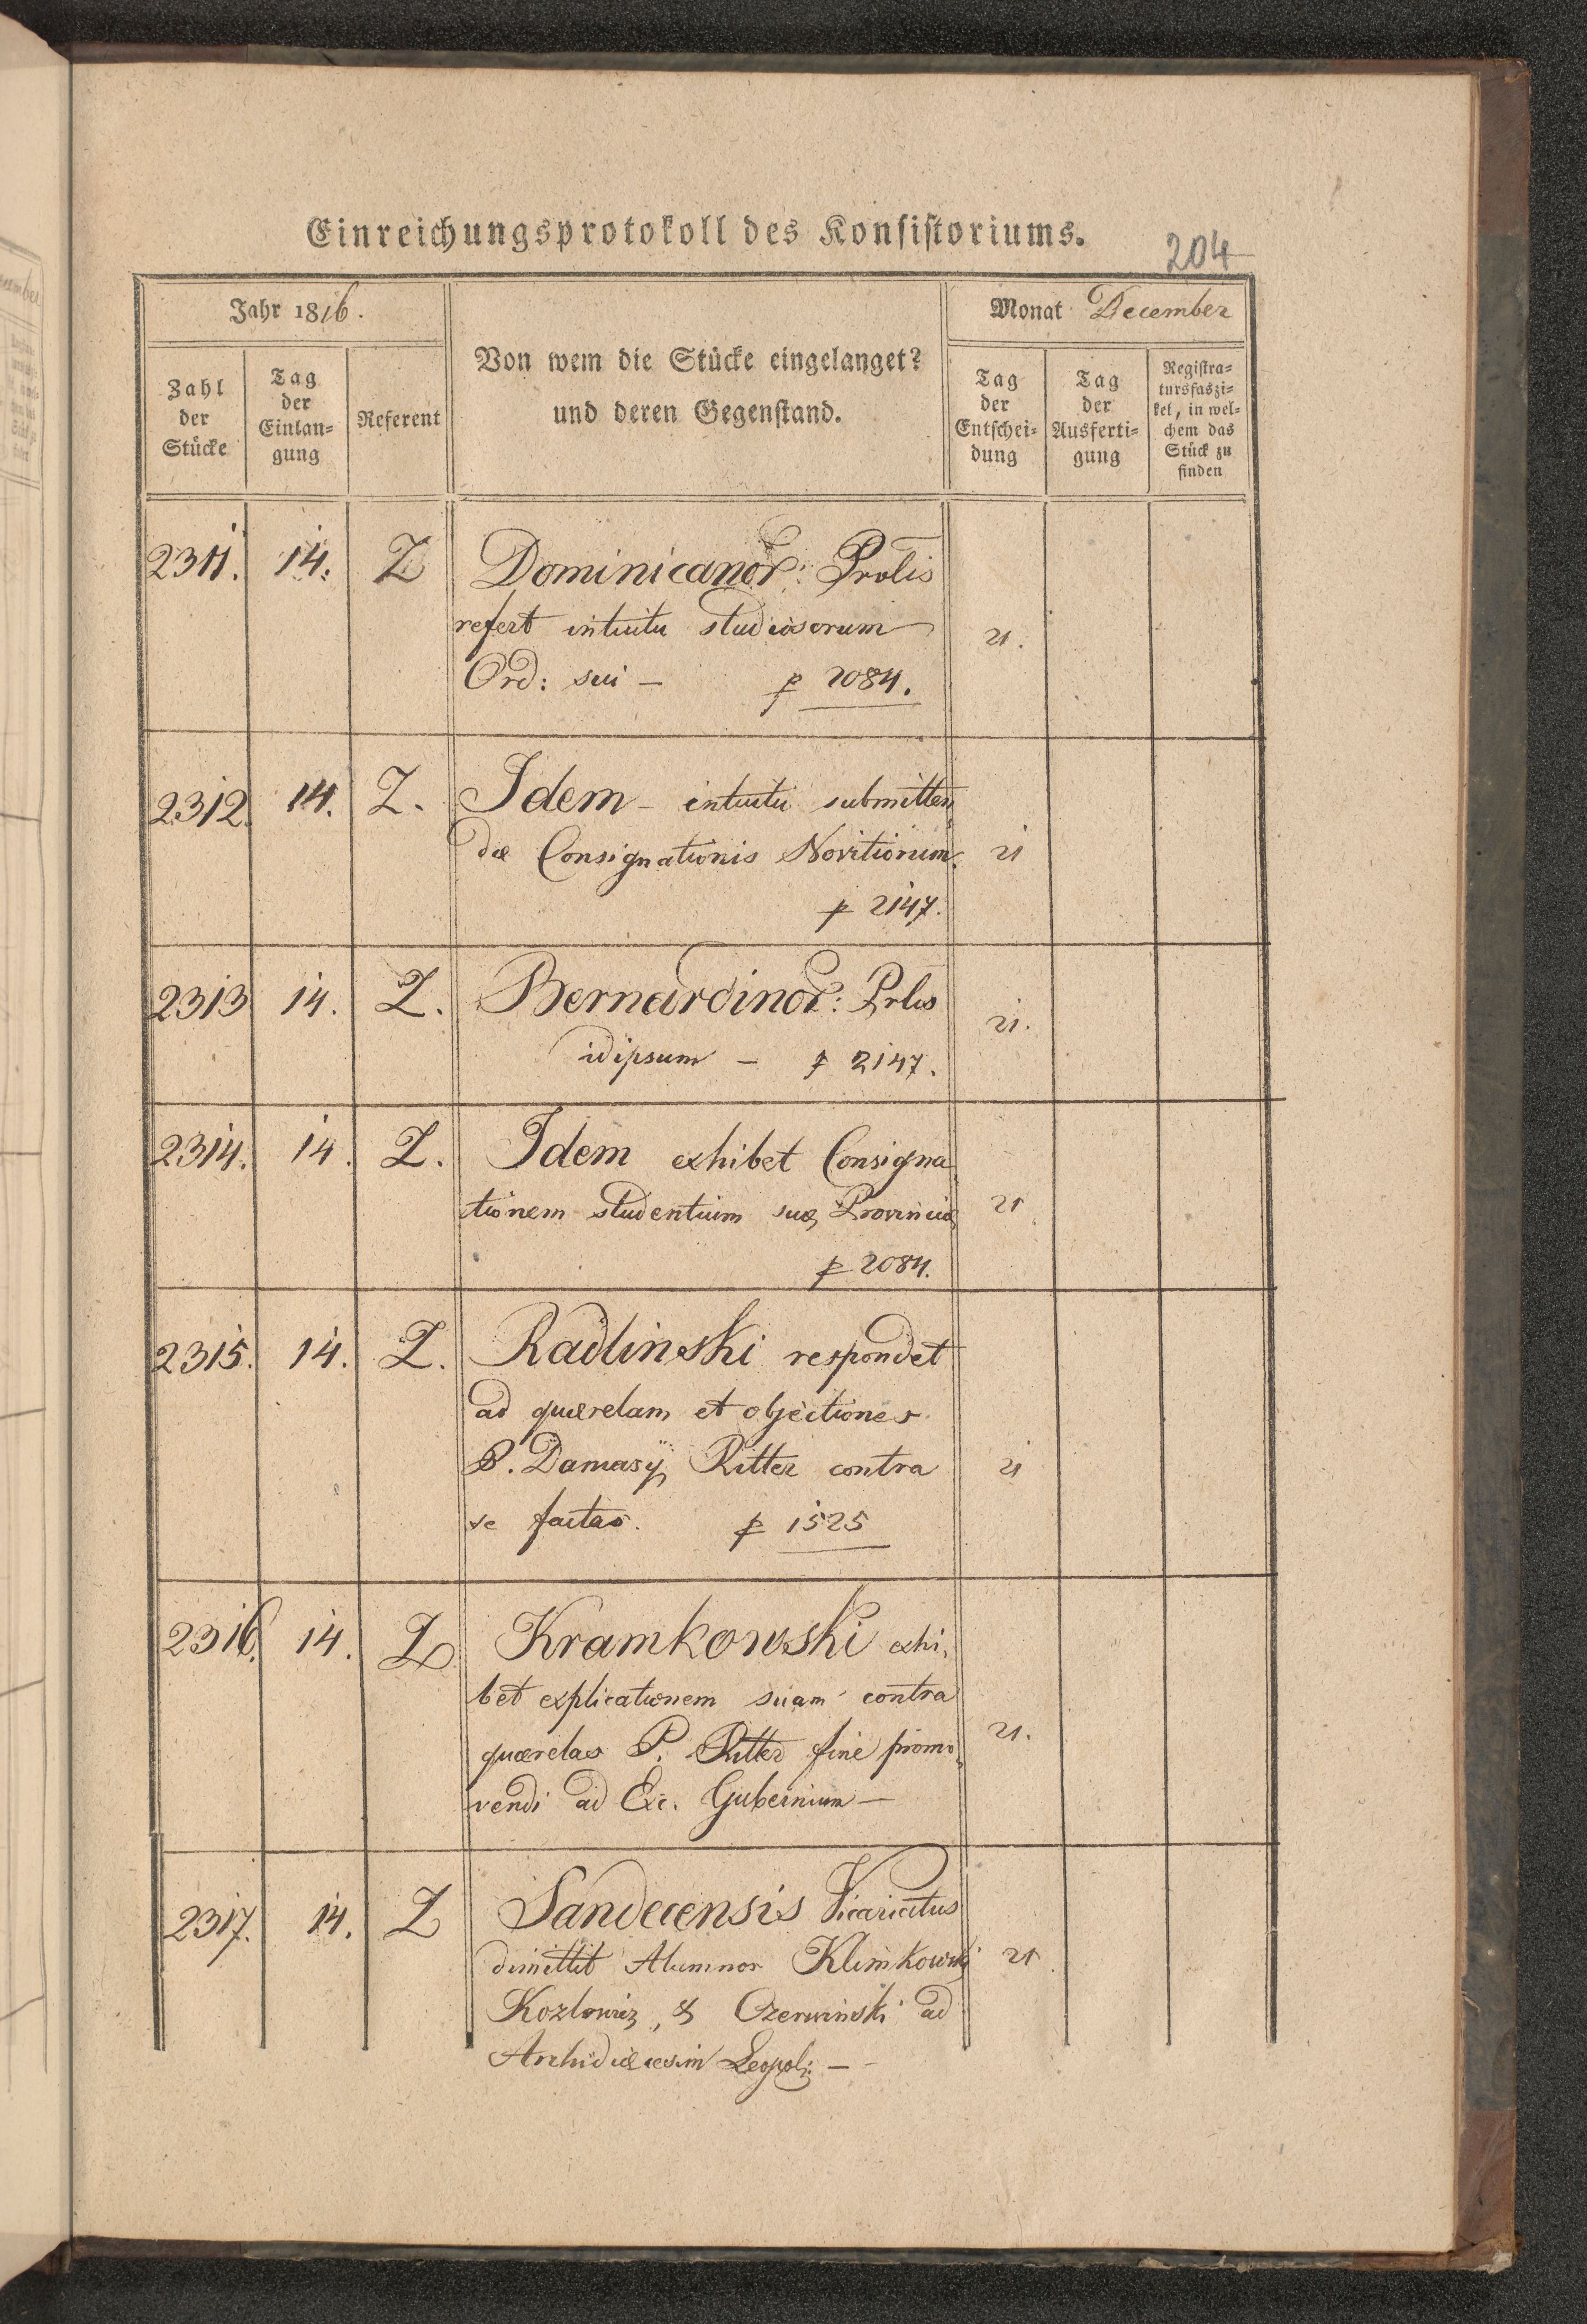 Einreichungsprotokoll des Konsistoriums.
204
Jahr 1816.
Von wem die Stücke eingelanget?
und deren Gegenstand.
Monat December
Zahl
der
Stücke
Tag
der
Einlan=
gung
Referent
Tag
der
Entschei=
dung
Tag
der
Ausferti=
gung
Registra=
tursfaszi=
kel, in wel=
chem das
Stück zu
finden
2311. 14. Z Dominicanor: Prolis
refert intuitu studiosorum 21.
Ord: sui — p 2084.
2312. 14. Z. Idem – intuitu submitten
dæ Consignationis Novitiorum 21
p 2147.
2313 14. Z. Bernardinor: Prlis 21.
idipsum — p 2147.
2314. 14. Z. Idem exhibet Consigna
tionem studentium suæ Provinciæ 21
p 2084.
2315. 14. Z. Radlinski respondet
ad quærelam et objectiones
P. Damasÿ Ritter contra 21
se factas. p 1525
2316. 14. Z Kramkowski exhi,
bet explicationem suam contra
quærelas P. Ritter fine promo, 21.
vendi ad Exc. Gubernium —
2317. 14. Z Sandecensis Vicariatus
dimittit Alumnos Klimkowski 21
Kozlowicz, & Czerwinski ad
Archidiæcesim Leopol: —